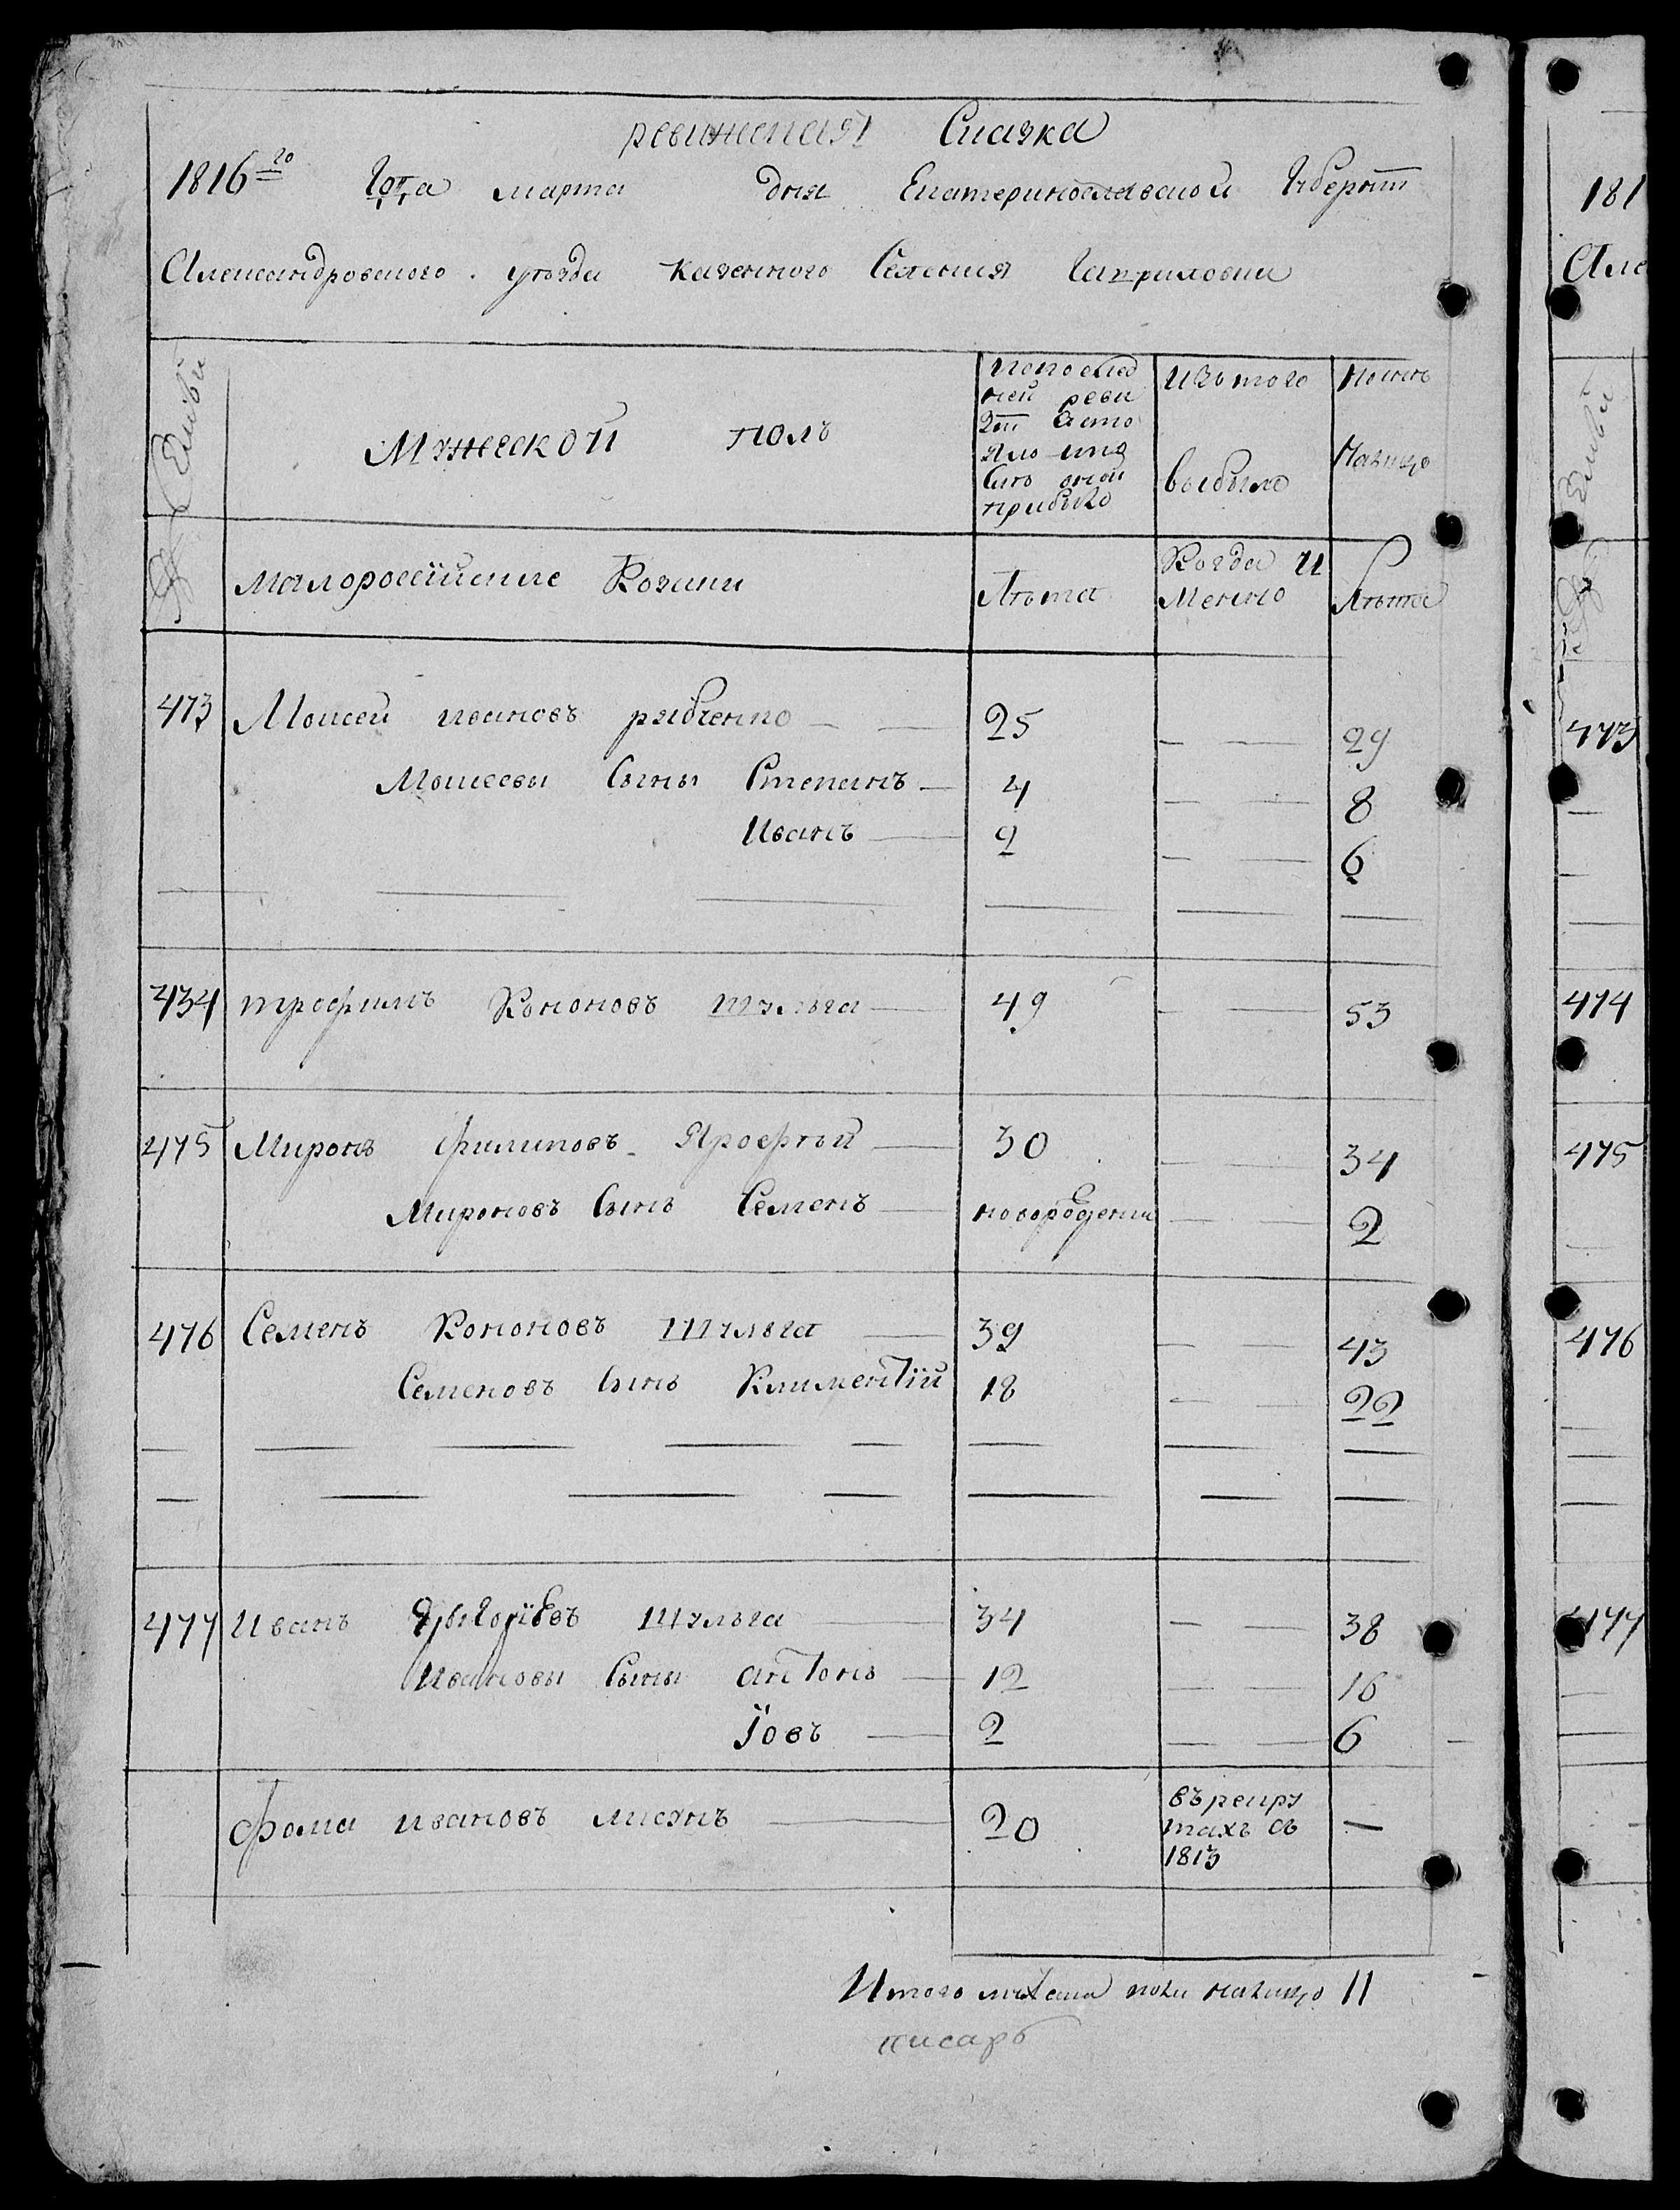 ревижская Сказка
1816го Года марта дня Екатеринославской Губернiи
Александровского уѣзда казенного Селения Гавриловки
Семьи
Мужеской полъ
по послед
ней реви
зiи Состо
яло и по
слѣ оной
прибыло
Изъ того
выбыло
Ныне
Налицо
№
малороссїйские Козаки
Лѣта
Когда И
Менно
Лѣта
473 Моисей ивановъ рябченко 25 29
Моисеевы Сыны Степанъ 4 8
Иванъ 2 6
434 трофимъ Кононовъ шульга 49 53
475 Миронъ филиповъ Ярофѣй 30 34
Мироновъ Сынъ Семенъ новорожденны 2
476 Семенъ Кононовъ Шульга 39 43
Семеновъ Сынъ Климентїй 18 22
477 Иванъ Григорїевъ Шульга 34 38
Ивановы Сыны антонъ 12 16
Їовъ 2 6
фома ивановъ 20 въ рекру
тахъ съ —
1813
Итого мужеска пола налицо 11
писарь
181
Але
Семьи
473
474
475
476
477